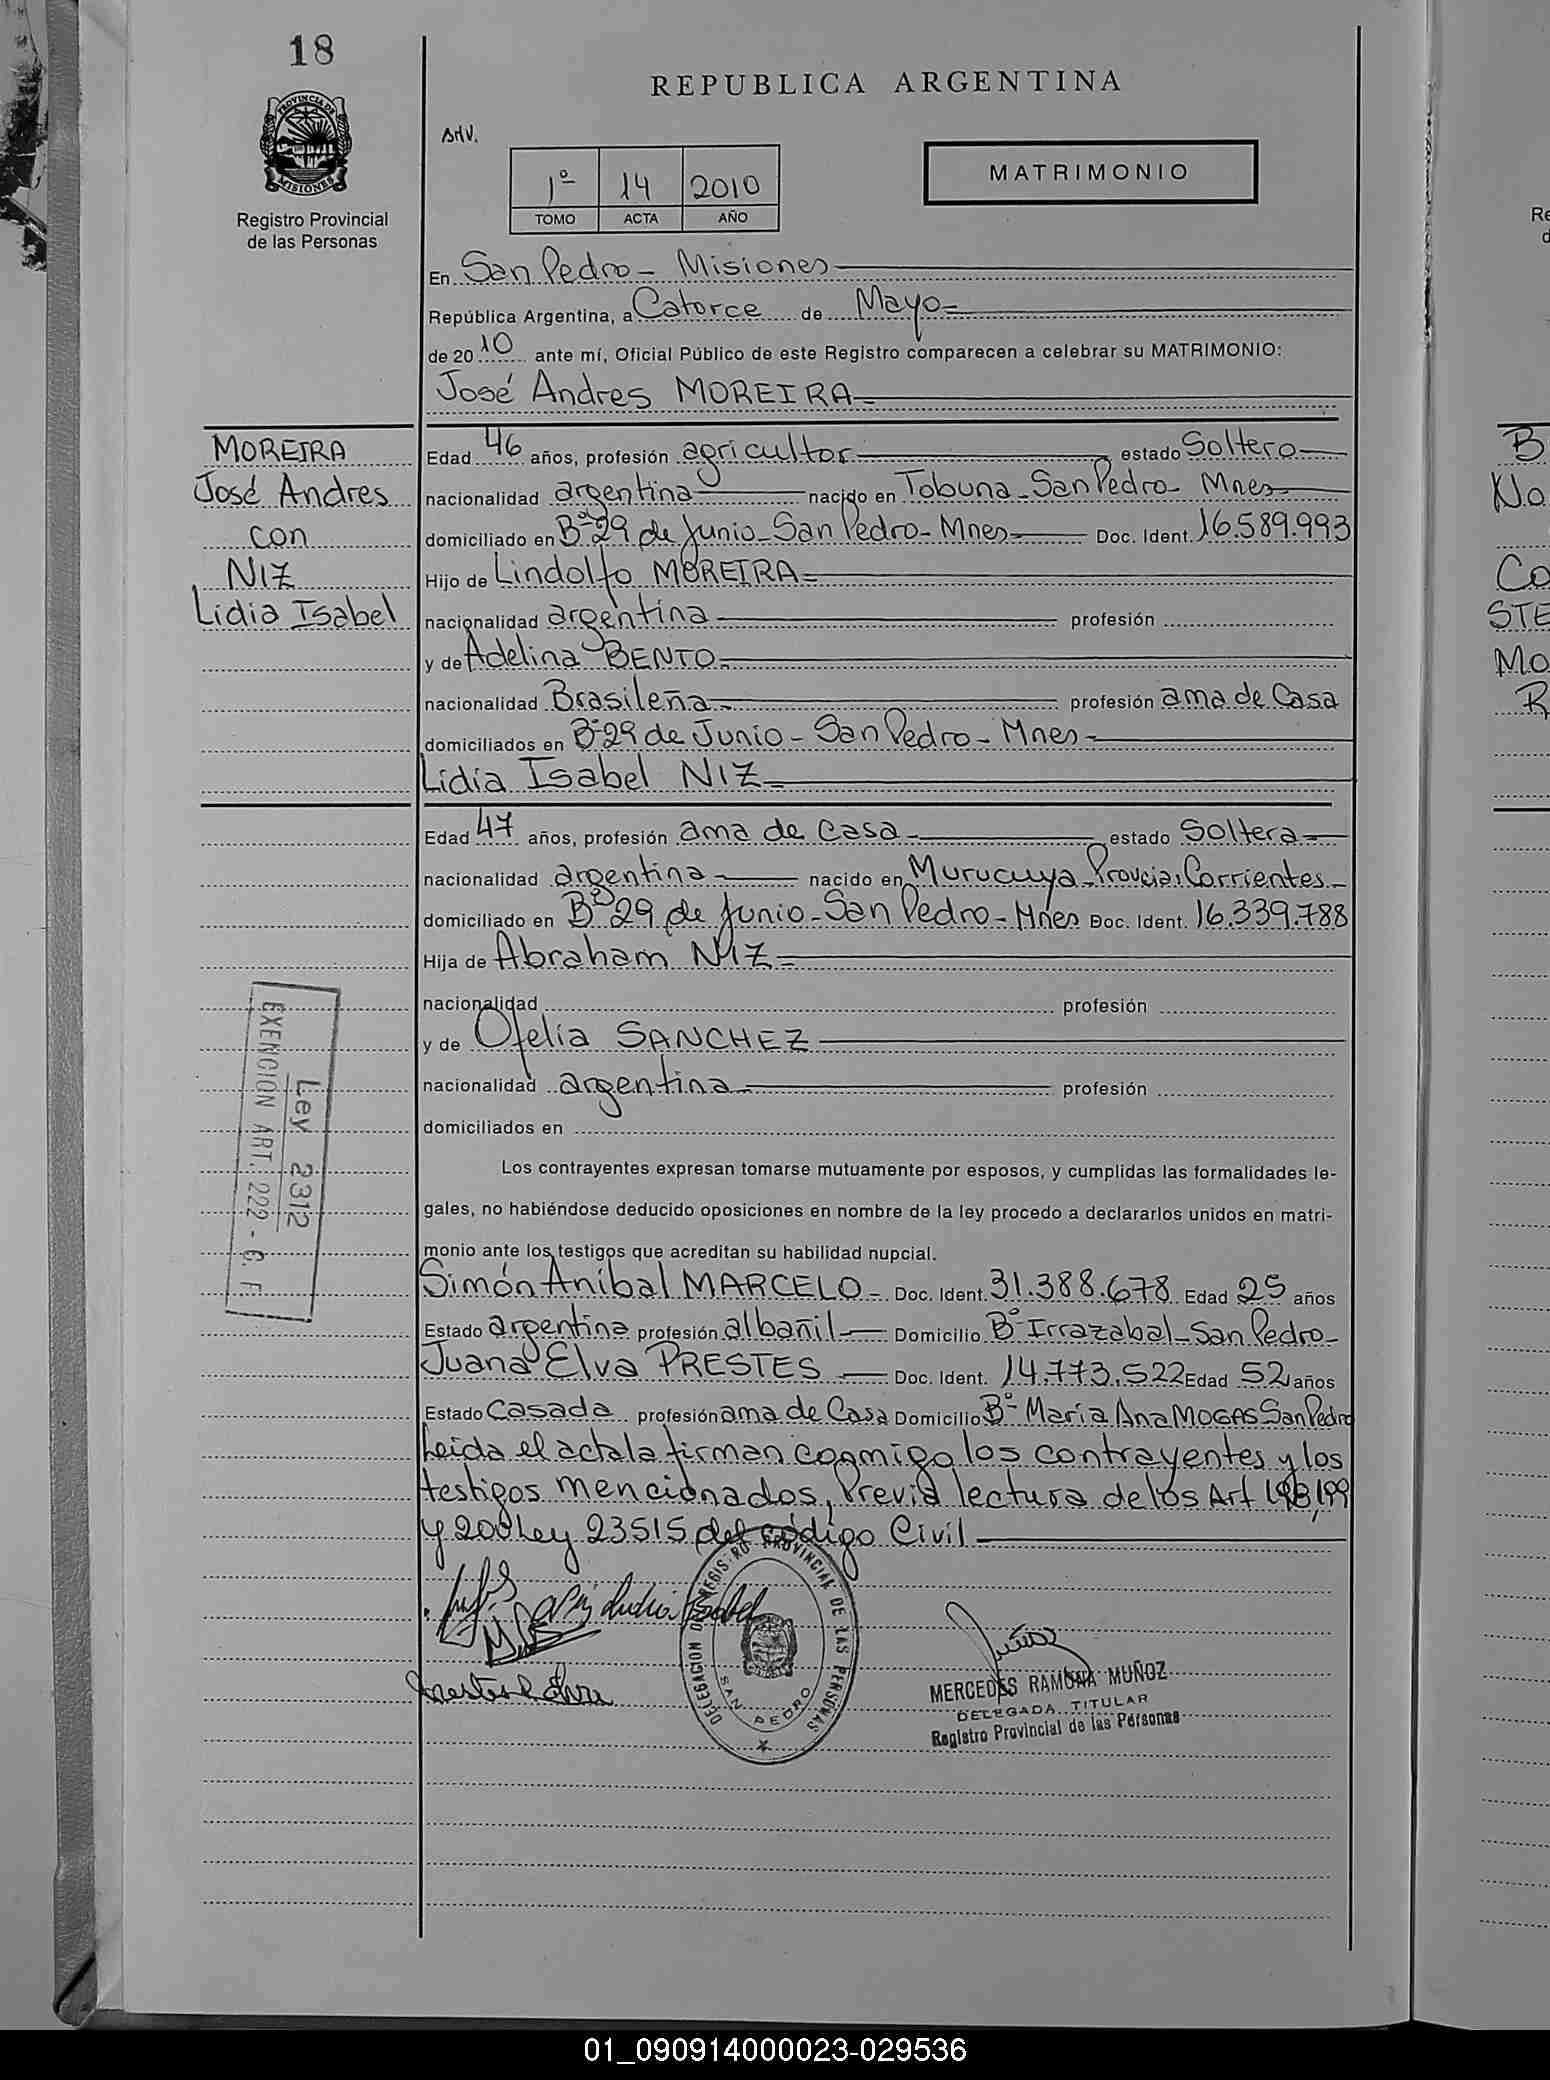 18
REPUBLICA ARGENTINA
PROVINCIA DE
MISIONES
Registro Provincial
de las Personas
1º 14 2010
TOMO ACTA AÑO
MATRIMONIO
En San Pedro - Misiones
República Argentina, a Catorce de Mayo
de 20 10 ante mí, Oficial Público de este Registro comparecen a celebrar su MATRIMONIO:
José Andres MOREIRA
MOREIRA
José Andres
con
NIZ
Lidia Isabel
Edad 46 años, profesión agricultor estado Soltero
nacionalidad argentina nacido en Tobuna - San Pedro - Mnes
domiciliado en Bº 29 de Junio - San Pedro - Mnes Doc. Ident. 16.589.993
Hijo de Lindolfo MOREIRA
nacionalidad argentina profesión
y de Adelina BENTO
nacionalidad Brasileña profesión ama de Casa
domiciliados en Bº 29 de Junio - San Pedro - Mnes
Lidia Isabel NIZ
Edad 47 años, profesión ama de casa estado Soltera
nacionalidad argentina nacido en Murucuya - Provcia, Corrientes
domiciliado en Bº 29 de Junio - San Pedro - Mnes Doc. Ident. 16.339.788
Hija de Abraham NIZ
nacionalidad profesión
y de Ofelia SANCHEZ
nacionalidad argentina profesión
domiciliados en
Ley 2312
EXENCION ART. 222 -
Los contrayentes expresan tomarse mutuamente por esposos, y cumplidas las formalidades le-
gales, no habiéndose deducido oposiciones en nombre de la ley procedo a declararlos unidos en matri-
monio ante los testigos que acreditan su habilidad nupcial.
Simón Anibal MARCELO - Doc. Ident. 31.388.678 Edad 25 años
Estado argentina profesión albañil Domicilio Bº Irrazabal - San Pedro -
Juana Elva PRESTES Doc. Ident. 14.773.522 Edad 52 años
Estado Casada profesión ama de Casa Domicilio Bº Maria Ana MOGAS San Pedro
Leida el acta la firman conmigo los contrayentes y los
testigos mencionados, Previa lectura de los Art 198, 199
y 200 Ley 23515 del código Civil
Niz Lidia Isabel
DELEGACION DEL REGISTRO PROVINCIAL DE LAS PERSONAS
SAN PEDRO
MERCEDES RAMONA MUÑOZ
DELEGADA TITULAR
Registro Provincial de las Personas
B
No
Co
STE
Mo
R
01_090914000023-029536